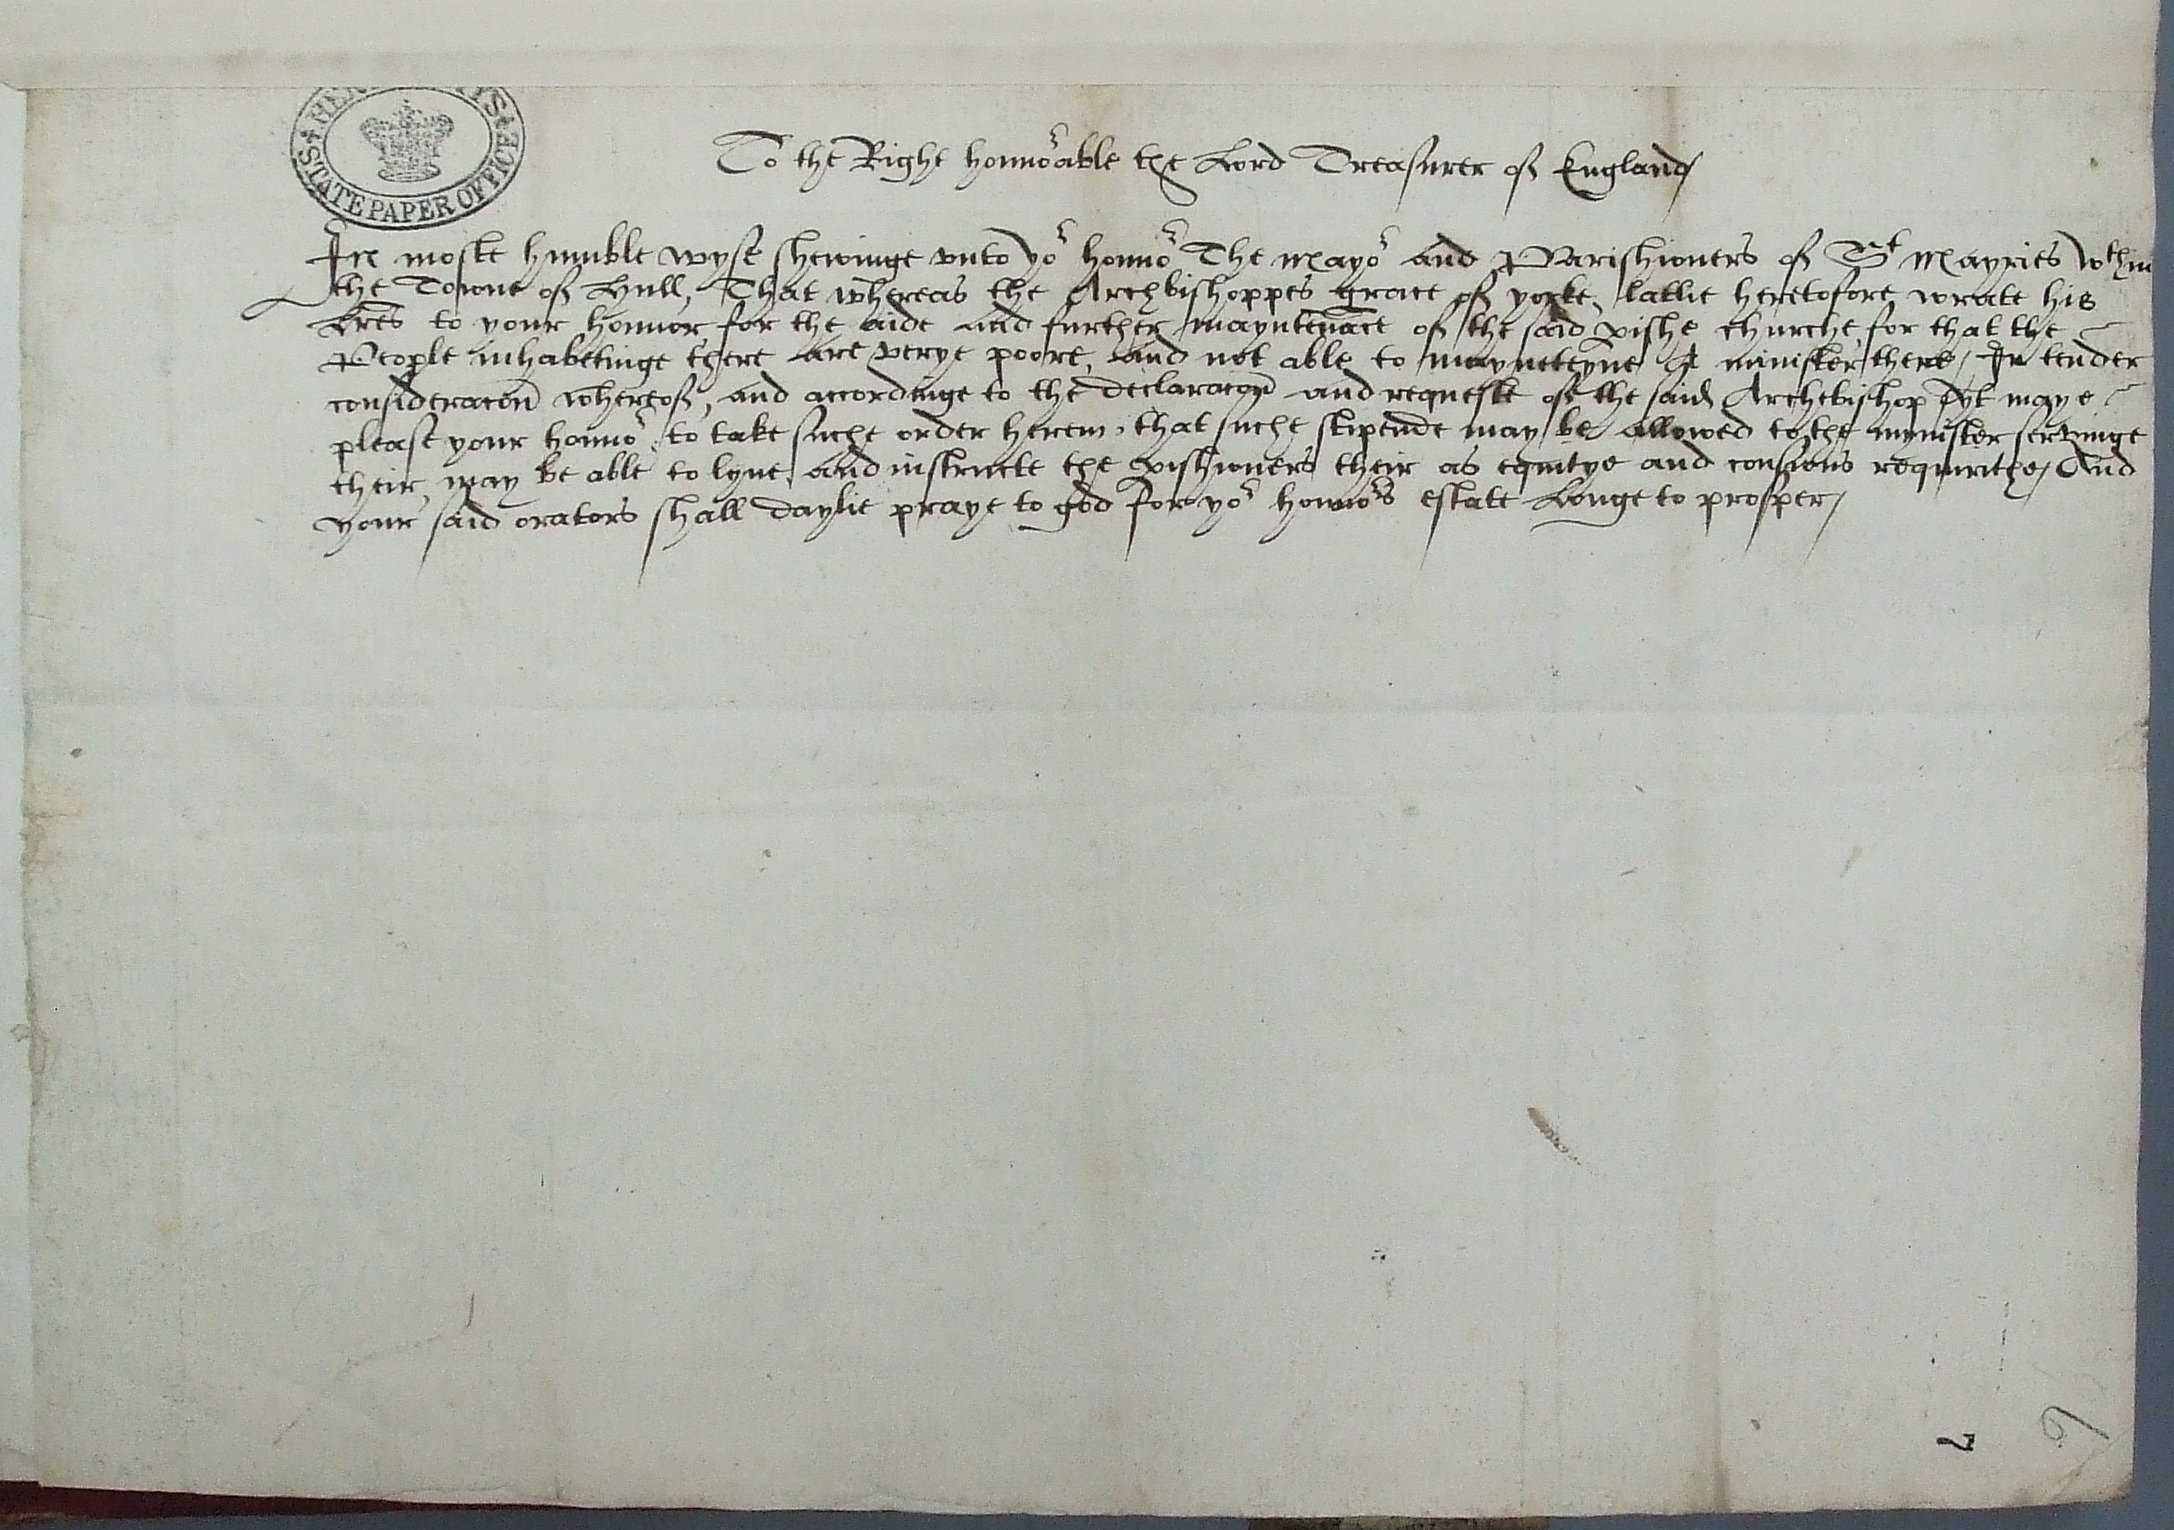 HER MAJESTYS STATE PAPER OFFICE
To the Right honno^r able the Lord Treasurer of England/
In moste humble wyse shewinge vnto yo^r honno^r The mayo^r and Parishioners of S^t Mayries w^thin
the Towne of Hull, That whereas the Archbishoppes grace of yorke, latlie heretofore wrate his
lres to your honnor for the aide and further mayntenāce of the said pishe churche, for that the
People inhabetinge there are verye poore, and not able to mayneteyne A minister there / In tender
consideracon whereof, and accordinge to the declaracon and requeste of the said Archebishop yt maye
please your honno^r to take suche order herein, that suche stipende may be allowed to the minister servinge
their, may be able to lyue and instructe the pishioners their as equitye and consiens requirithe / And
your said orators shall daylie praye to god for yo^r honno^rs estate Longe to prosper /
7